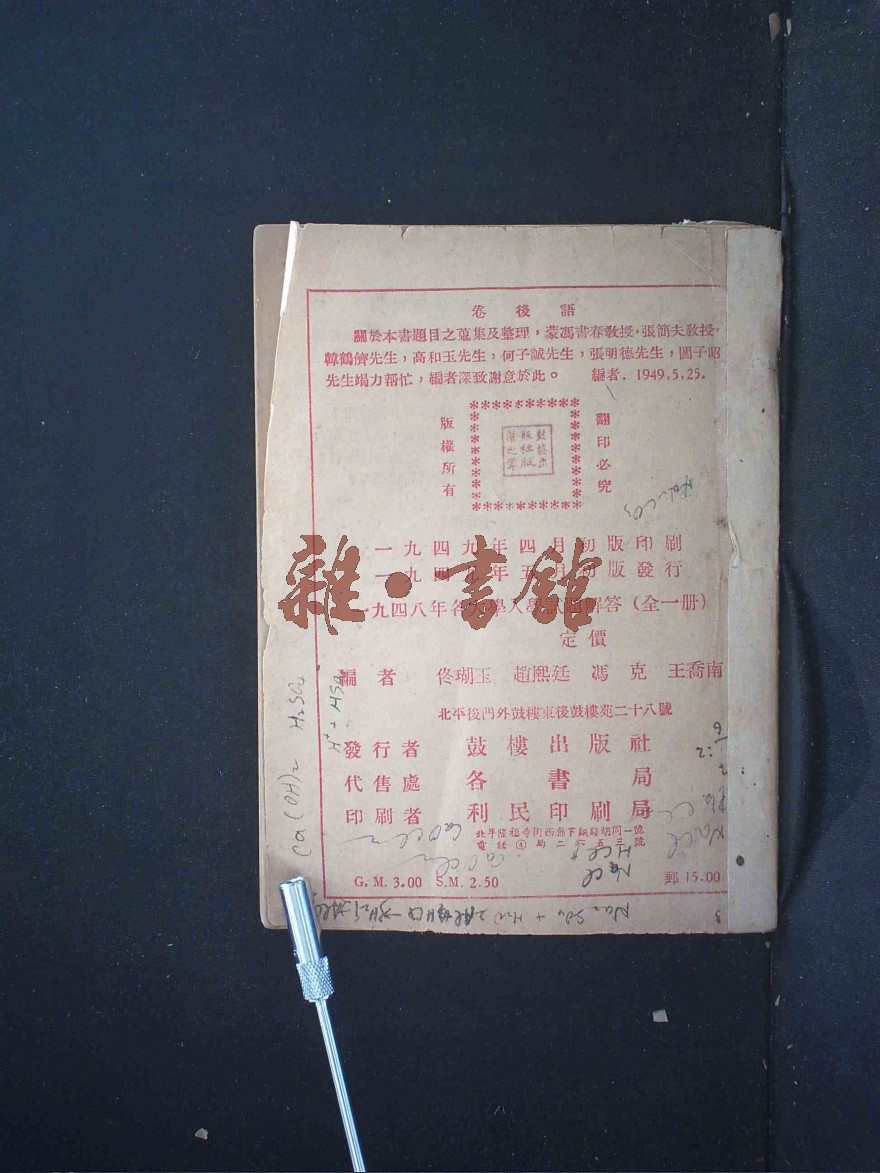 卷後語
關於本書題目之蒐集及整理，蒙馮書春敎授，張簡夫敎授，
韓鶴儕先生，高和玉先生，何子誠先生，張明德先生，閻子昭
先生竭力帮忙，編者深致謝意於此。 編者．1949,5,25.
版權所有
翻印必究
一九四九年四月初版印刷
一九四九年五月初版發行
一九四八年各大學入學試題解答（全一册）
定價
編者 佟瑚玉 趙熙廷 馮克 王喬南
北平後門外鼓樓東後鼓樓苑二十八號
發行者 鼓樓出版社
代售處 各書局
印刷者 利民印刷局
北平隆福寺街西廊下鐵綫胡同一號
電話④局二六五三號
G.M. 3.00 S.M. 2.50 郵 15.00
雜·書館
Ca(OH)2 H2SO4
NaCl
HCl